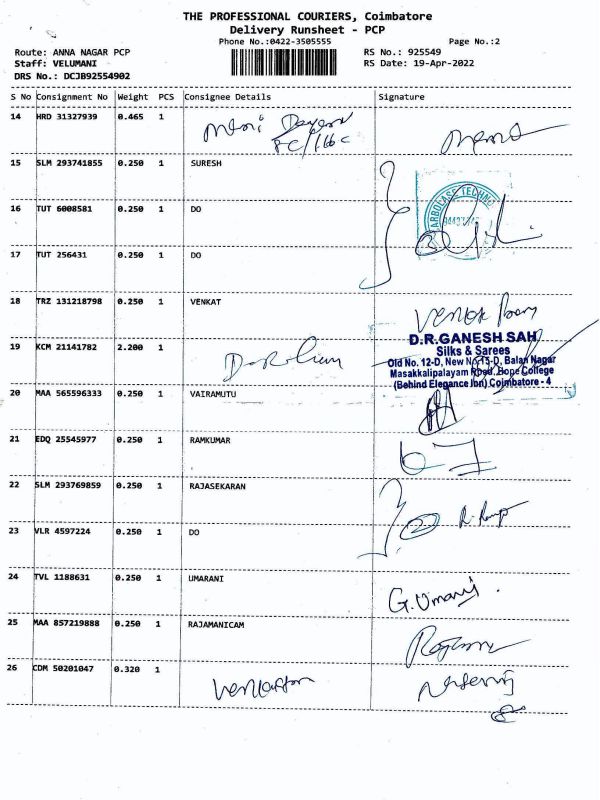 THE PROFESSIONAL COURIERS, Coimbatore
Delivery Runsheet - PCP
Phone No.:0422-3505555 Page No.:2
Route: ANNA NAGAR PCP RS No.: 925549
Staff: VELUMANI RS Date: 19-Apr-2022
DRS No.: DCJB92554902
S No Consignment No Weight PCS Consignee Details Signature
14 HRD 31327939 0.465 1
15 SLM 293741855 0.250 1 SURESH
16 TUT 6008581 0.250 1 DO
17 TUT 256431 0.250 1 DO
18 TRZ 131218798 0.250 1 VENKAT
D.R.GANESH SAH
19 KCM 21141782 2.200 1 Silks & Sarees
Old No. 12-D, New No.15-D, Balan Nagar
Masakkalipalayam Road, Hope College
(Behind Elegance Inn) Coimbatore - 4
20 MAA 565596333 0.250 1 VAIRAMUTU
21 EDQ 25545977 0.250 1 RAMKUMAR
22 SLM 293769859 0.250 1 RAJASEKARAN
23 VLR 4597224 0.250 1 DO
24 TVL 1188631 0.250 1 UMARANI
G.Umarani
25 MAA 857219888 0.250 1 RAJAMANICAM
26 CDM 50201047 0.320 1